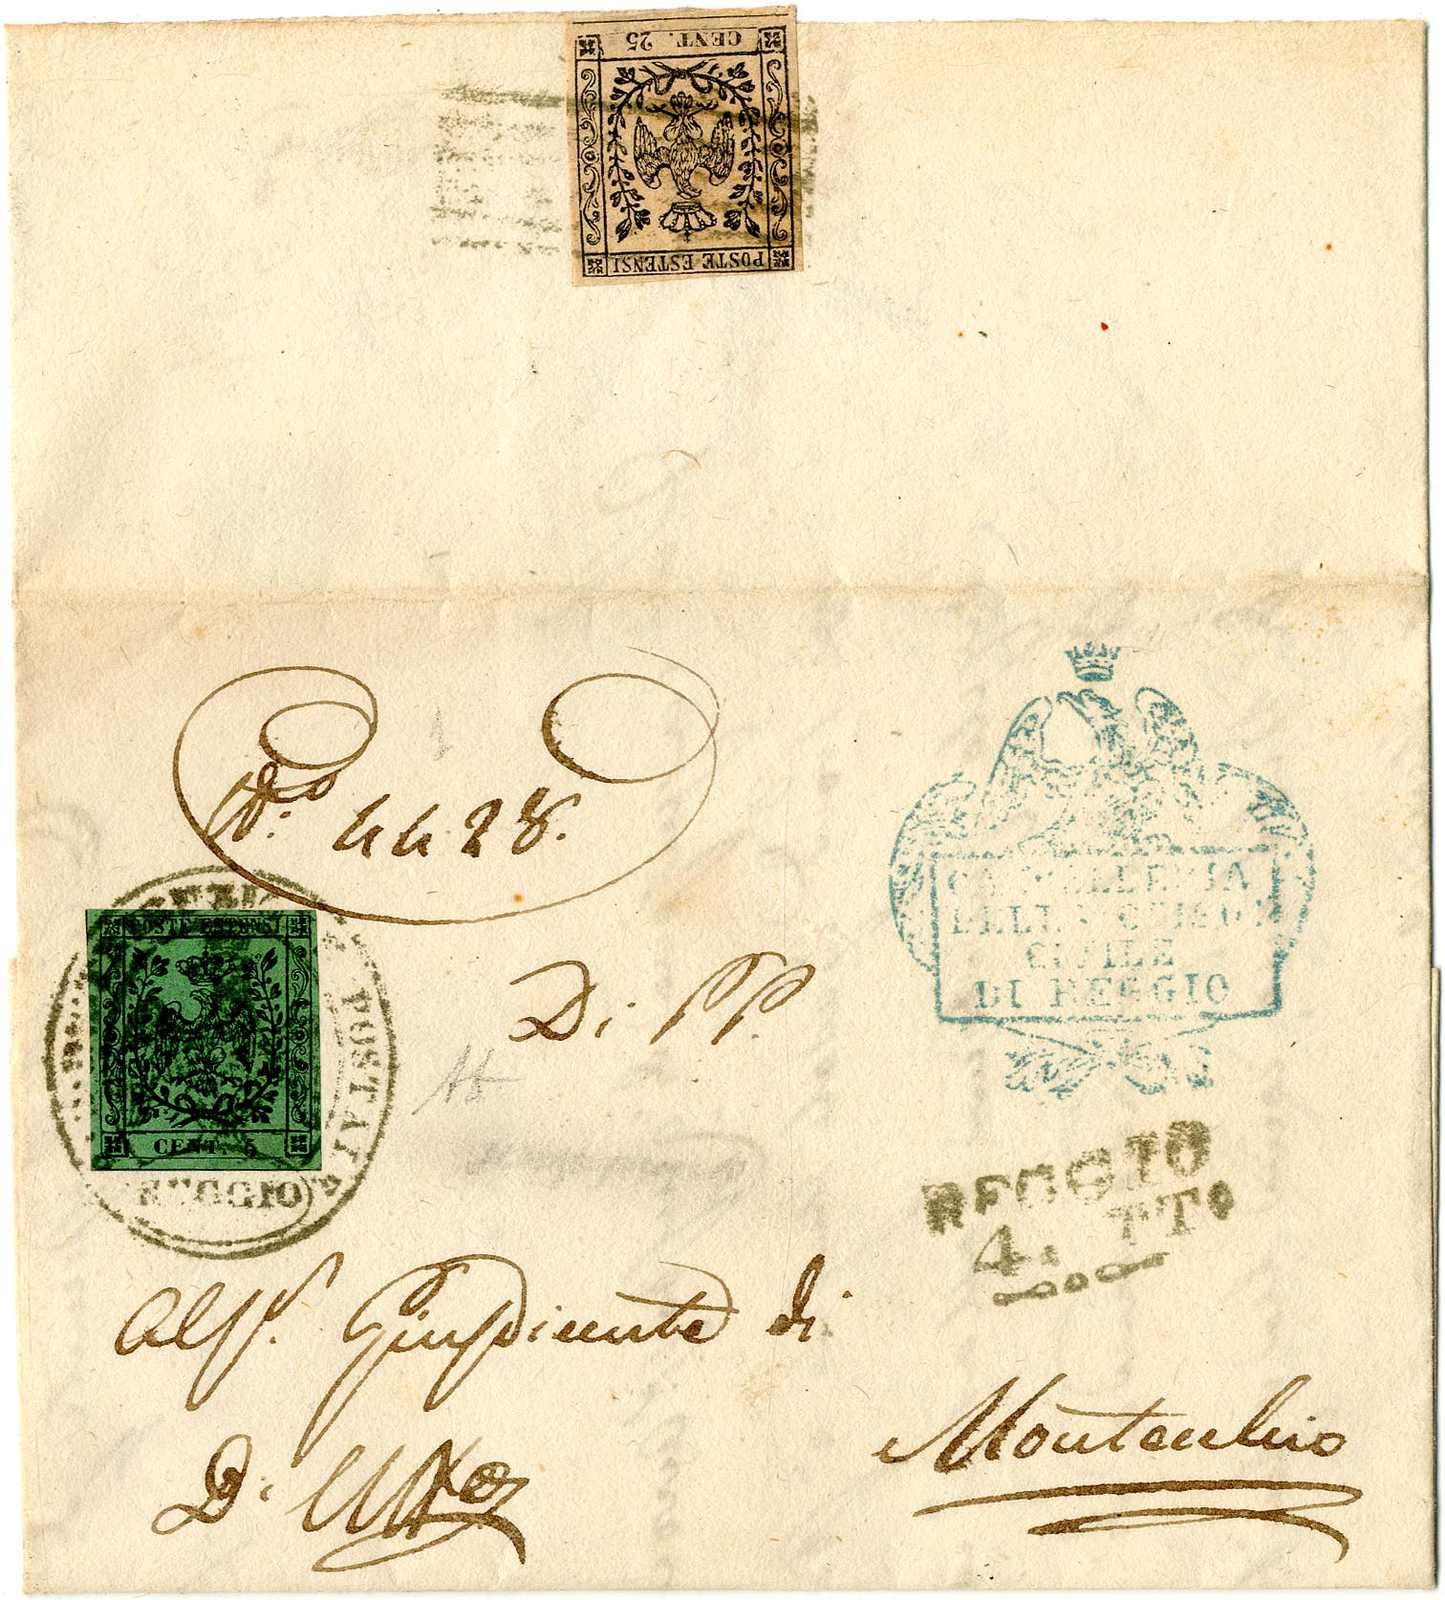 CENT. 25
POSTE ESTENSI
N.º 4428.
POSTE ESTENSI
CENT. 5
POSTALE
REGGIO
CANCELLERIA
CIVILE
DI REGGIO
Di
REGGIO
4. TT
Giusdicente di
Montecchio